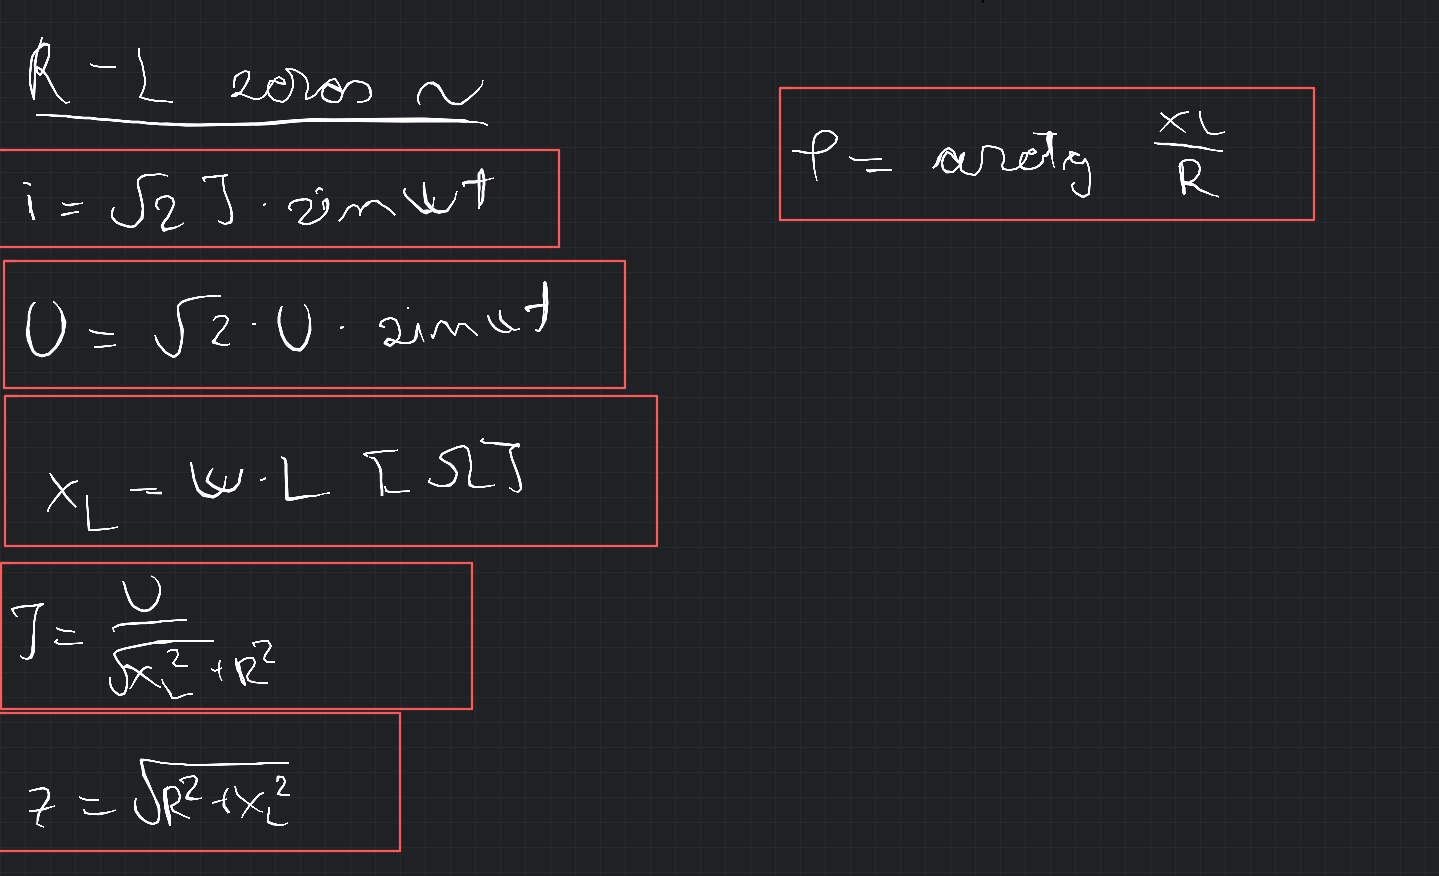 R-L soros ~
i = √2 I · sin ωt
U = √2 · U · sin ωt
X_L = ω · L [Ω]
I = U / √X_L² + R²
Z = √R² + X_L²
φ = arctg XL / R